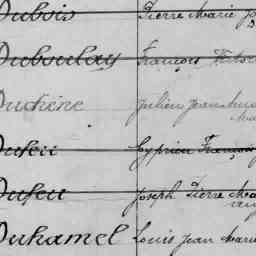 Dubois Pierre Marie
Duboulay François
Duchêne Julien Jean
Dufeu Cyprien François
Dufeu Joseph Pierre
Duhamel Louis Jean Marie